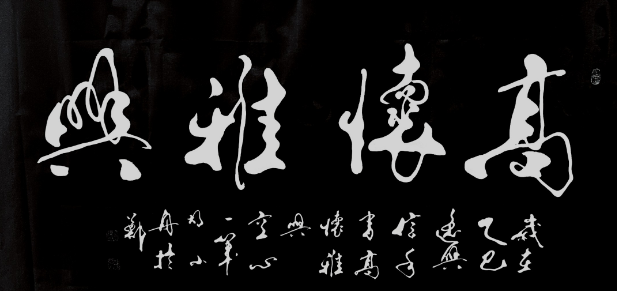 高懷雅興
歲在
乙巳
興
信手
書高
懷雅
興
空心
一筆
小
鄭